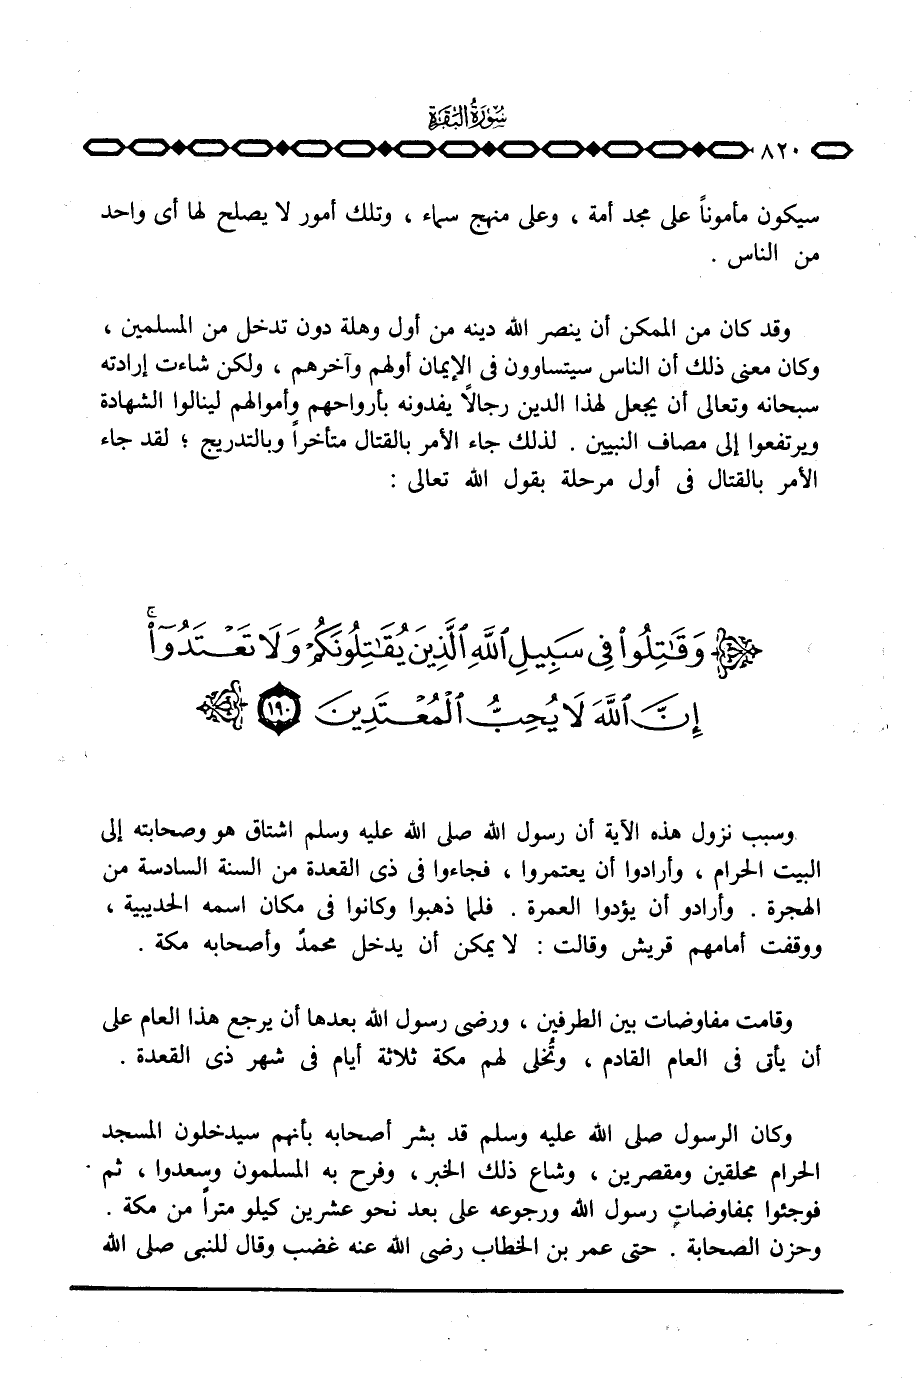 سُورَةُ البَقَرَةِ
٨٢٠
سيكون مأموناً على مجد أمة ، وعلى منهج سماء ، وتلك أمور لا يصلح لها أى واحد
من الناس .
وقد كان من الممكن أن ينصر الله دينه من أول وهلة دون تدخل من المسلمين ،
وكان معنى ذلك أن الناس سيتساوون فى الإيمان أولهم وآخرهم ، ولكن شاءت إرادته
سبحانه وتعالى أن يجعل لهذا الدين رجالاً يفدونه بأرواحهم وأموالهم لينالوا الشهادة
ويرتفعوا إلى مصاف النبيين . لذلك جاء الأمر بالقتال متأخراً وبالتدريج ؛ لقد جاء
الأمر بالقتال فى أول مرحلة بقول الله تعالى :
وَقَٰتِلُوا۟ فِى سَبِيلِ ٱللَّهِ ٱلَّذِينَ يُقَٰتِلُونَكُمْ وَلَا تَعْتَدُوٓا۟ ۚ
إِنَّ ٱللَّهَ لَا يُحِبُّ ٱلْمُعْتَدِينَ ١٩٠
وسبب نزول هذه الآية أن رسول الله صلى الله عليه وسلم اشتاق هو وصحابته إلى
البيت الحرام ، وأرادوا أن يعتمروا ، فجاءوا فى ذى القعدة من السنة السادسة من
الهجرة . وأرادو أن يؤدوا العمرة . فلما ذهبوا وكانوا فى مكان اسمه الحديبية ،
ووقفت أمامهم قريش وقالت : لا يمكن أن يدخل محمدٌ وأصحابه مكة .
وقامت مفاوضات بين الطرفين ، ورضى رسول الله بعدها أن يرجع هذا العام على
أن يأتى فى العام القادم ، وتُخلى لهم مكة ثلاثة أيام فى شهر ذى القعدة .
وكان الرسول صلى الله عليه وسلم قد بشر أصحابه بأنهم سيدخلون المسجد
الحرام محلقين ومقصرين ، وشاع ذلك الخبر ، وفرح به المسلمون وسعدوا ، ثم
فوجئوا بمفاوضاتِ رسول الله ورجوعه على بعد نحو عشرين كيلو متراً من مكة .
وحزن الصحابة . حتى عمر بن الخطاب رضى الله عنه غضب وقال للنبى صلى الله